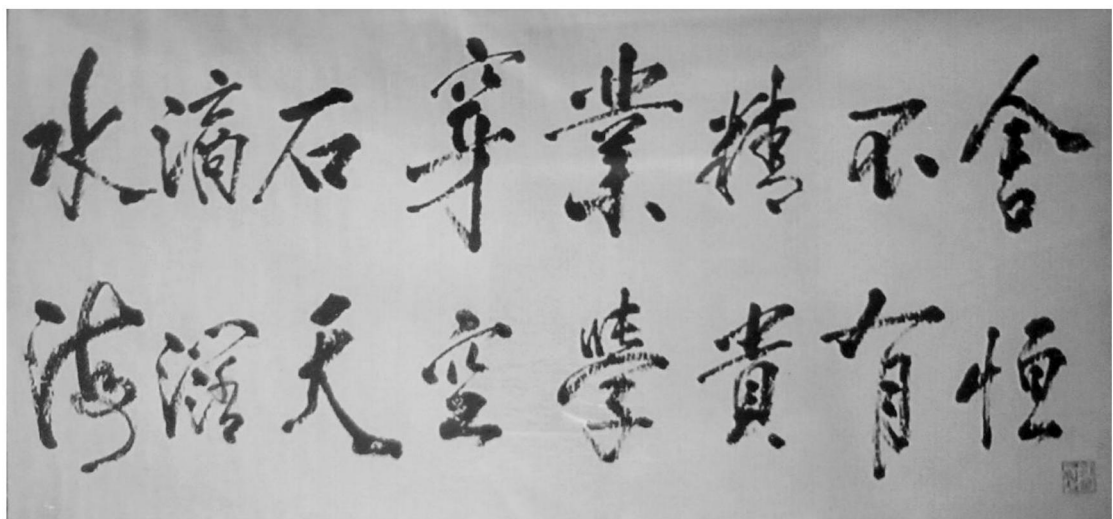 水滴石穿業精不舍
海濶天空學貴有恒